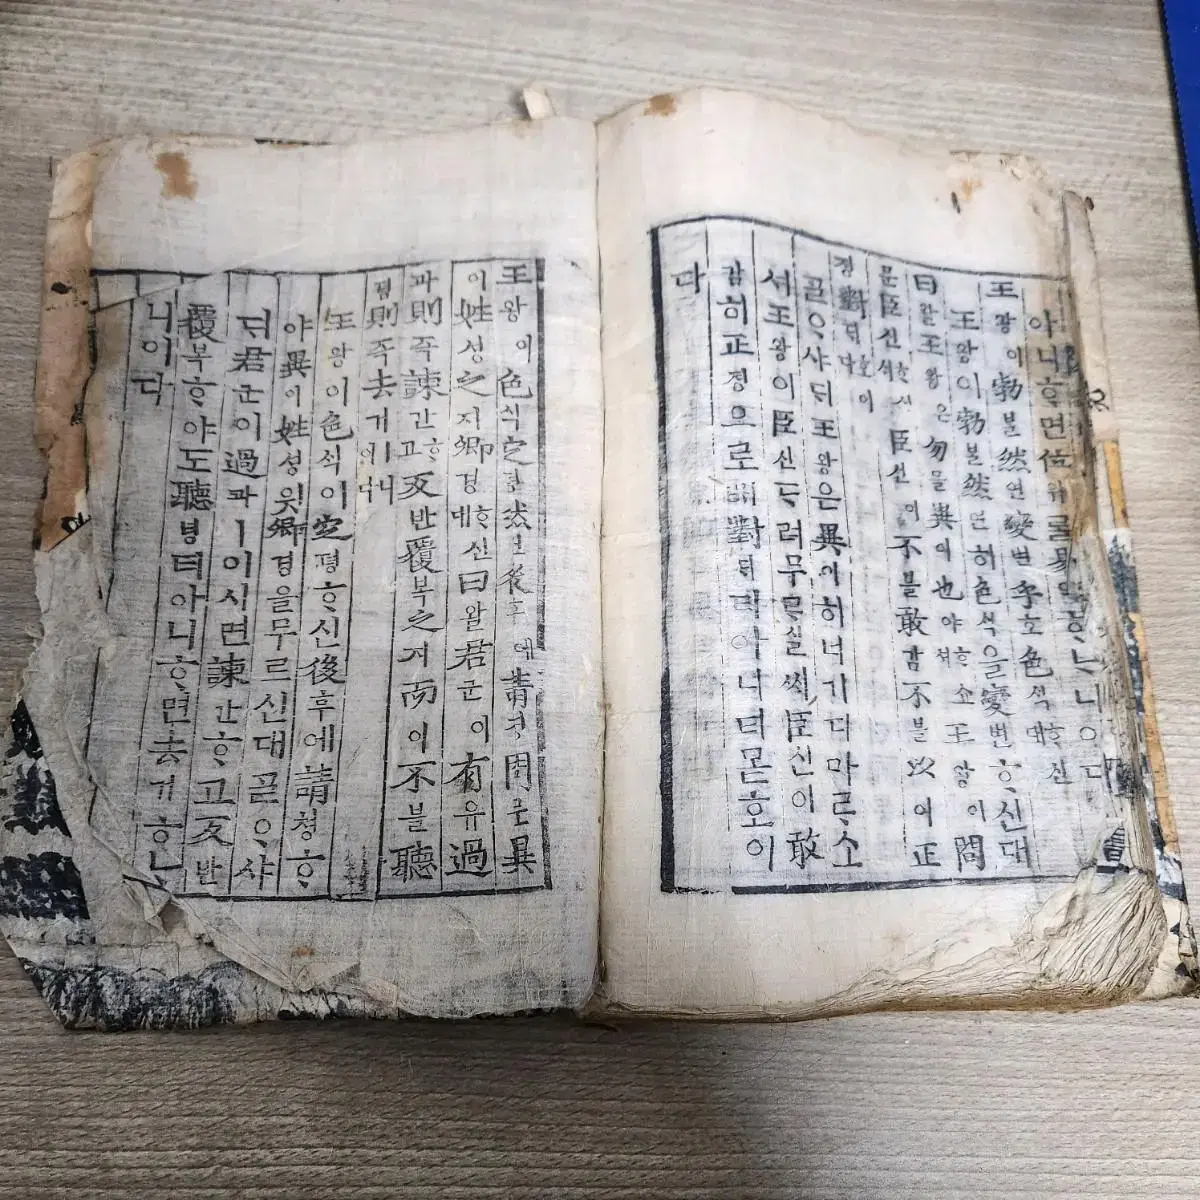 아니ᄒᆞ면位위를易역ᄒᆞᄂᆞ니
王왕이勃볼然연變변乎호色석대ᄒᆞ신
王왕이勃볼然연히色석을變변ᄒᆞ신대
曰왈王왕은勿믈異이也야ᄒᆞ소셔王왕이問
문臣신ᄒᆞ시셔臣신이不블敢감不블以이正
졍對ᄃᆡ호이다
골ᄋᆞ샤ᄃᆡ王왕은異이히너기디마ᄅᆞ소
셔王왕이臣신ᄃᆞ려무ᄅᆞ실ᄊᆡ臣신이敢
감히正졍으로ᄡᅥ對ᄃᆡ티아니티몯호이
다
王왕이色식定뎡然연後후에請쳥問문異
이姓셩之지卿경대ᄒᆞ신曰왈君군이有유過
과則즉諫간ᄒᆞ고反반覆복之지而이不블聽
텽則즉去거ㅣ니이다
王왕이色식이定뎡ᄒᆞ신後후에請쳥ᄒᆞ
야異이姓셩읫卿경을무르신대ᄀᆞᆯᄋᆞ샤
ᄃᆡ君군이過과ㅣ이시면諫간ᄒᆞ고反반
覆복ᄒᆞ야도聽텽티아니ᄒᆞ면去거ᄒᆞᄂᆞ
니이다